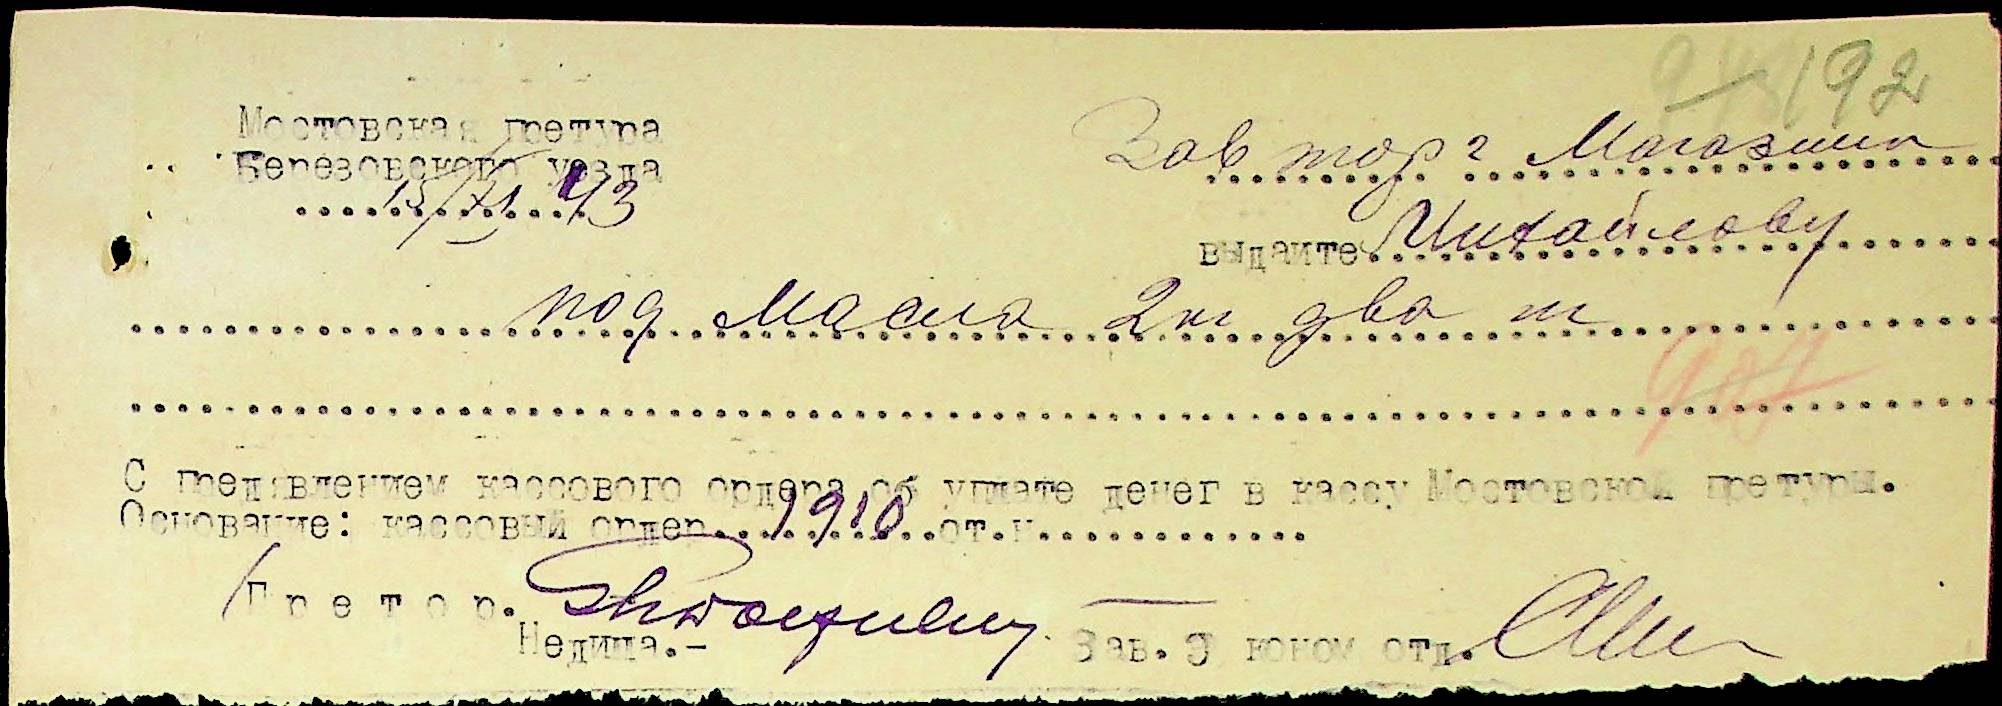 192
Мостовская претура
Березовского уезда
15/XI 43
Зав торг Магазина
выдайте Михайлову
под Масла 2 кг два
927
С предявлением кассового ордера об уплате денег в кассу Мостовской претуры.
Основание: кассовый ордер 1910 от.н
Претор.
Недица.-
Зав. Эконом отд.